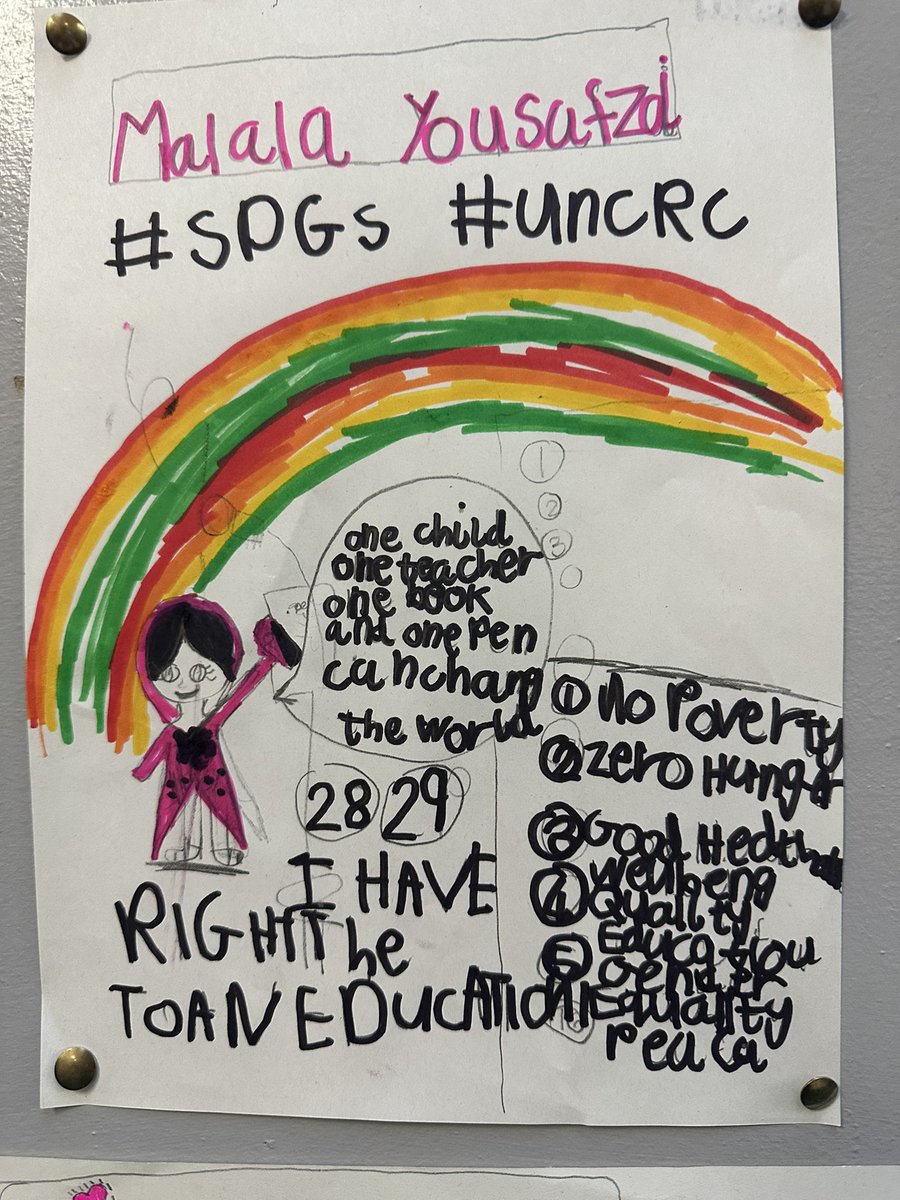 Malala Yousafzai
#SDGs #UNCRC
one child
one teacher
one book
and one pen
can chang
the world
1
2
3
28 29
I HAVE
RIGHT he
TO AN EDUCATION
1 no Poverty
2 zero Hunger
3 Good Health
wellbeng
4 Quality
Education
5 Gender
Equality
Peaca